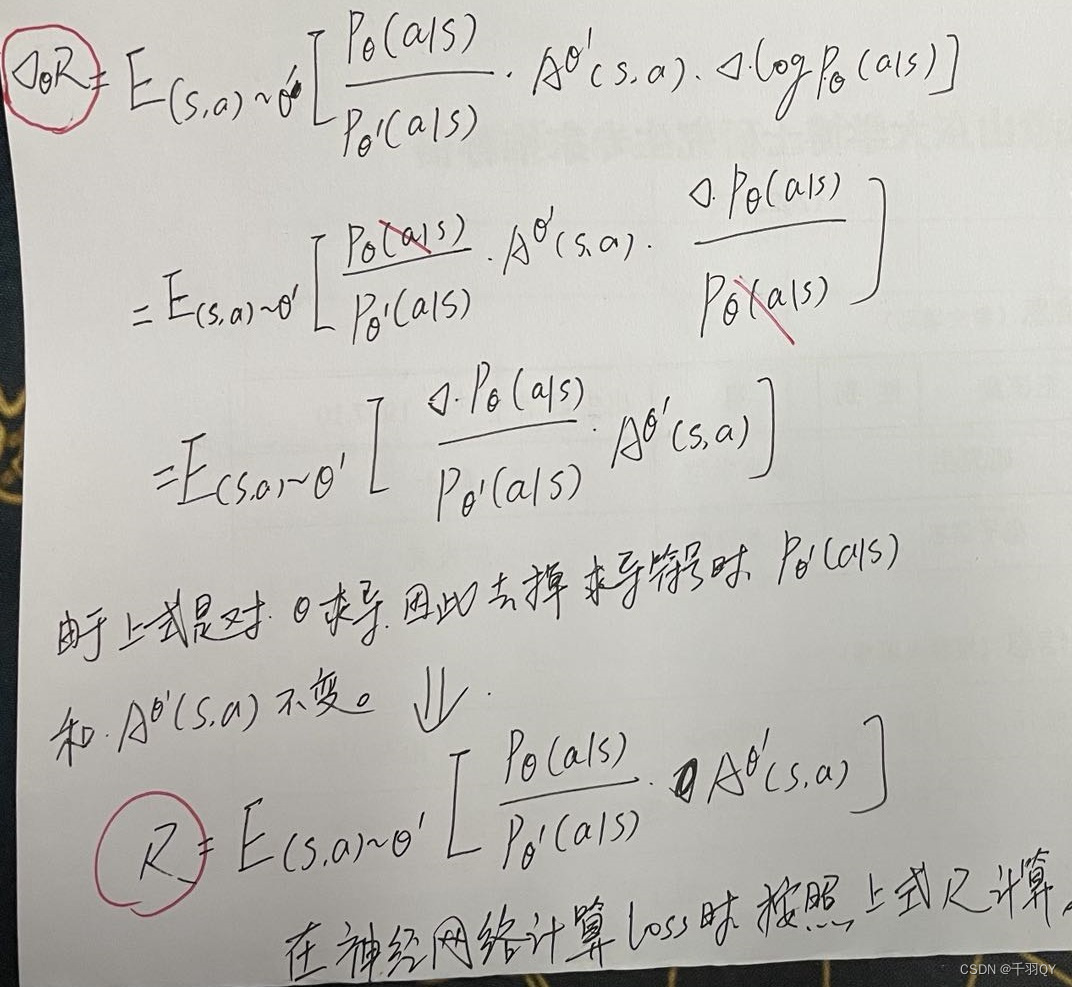 ∇θR = E(s,a)~θ' [ Pθ(a|s) / Pθ'(a|s) · A^θ'(s,a) · ∇·log Pθ(a|s) ]
= E(s,a)~θ' [ Pθ(a|s) / Pθ'(a|s) · A^θ'(s,a) · ∇·Pθ(a|s) / Pθ(a|s) ]
= E(s,a)~θ' [ ∇·Pθ(a|s) / Pθ'(a|s) · A^θ'(s,a) ]
由于上式是对 θ求导,因此去掉求导符号时, Pθ'(a|s)
和 A^θ'(s,a) 不变。 ⇓
R = E(s,a)~θ' [ Pθ(a|s) / Pθ'(a|s) · A^θ'(s,a) ]
在神经网络计算loss时,按照上式R计算。
CSDN @千羽QY